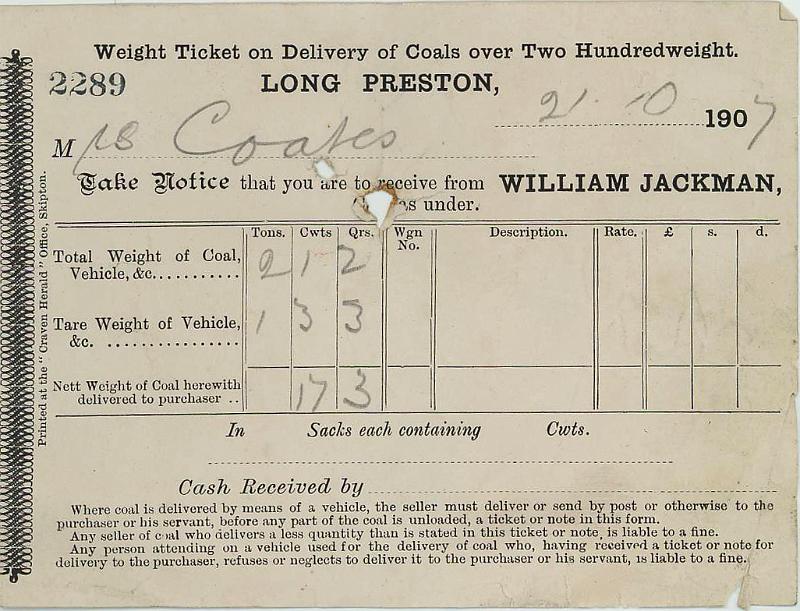 Weight Ticket on Delivery of Coals over Two Hundredweight.
2289 LONG PRESTON,
21. 10 1907
Mrs Coates
Take Notice that you are to receive from WILLIAM JACKMAN,
as under.
Tons. Cwts Qrs. Wgn No. Description. Rate. £ s. d.
Total Weight of Coal,
Vehicle, &c........... 2 1 2
Tare Weight of Vehicle,
&c. ................ 1 3 3
Nett Weight of Coal herewith
delivered to purchaser .. 17 3
In Sacks each containing Cwts.
Cash Received by
Where coal is delivered by means of a vehicle, the seller must deliver or send by post or otherwise to the
purchaser or his servant, before any part of the coal is unloaded, a ticket or note in this form.
Any seller of coal who delivers a less quantity than is stated in this ticket or note, is liable to a fine.
Any person attending on a vehicle used for the delivery of coal who, having received a ticket or note for
delivery to the purchaser, refuses or neglects to deliver it to the purchaser or his servant, is liable to a fine.
Printed at the "Craven Herald" Office, Skipton.